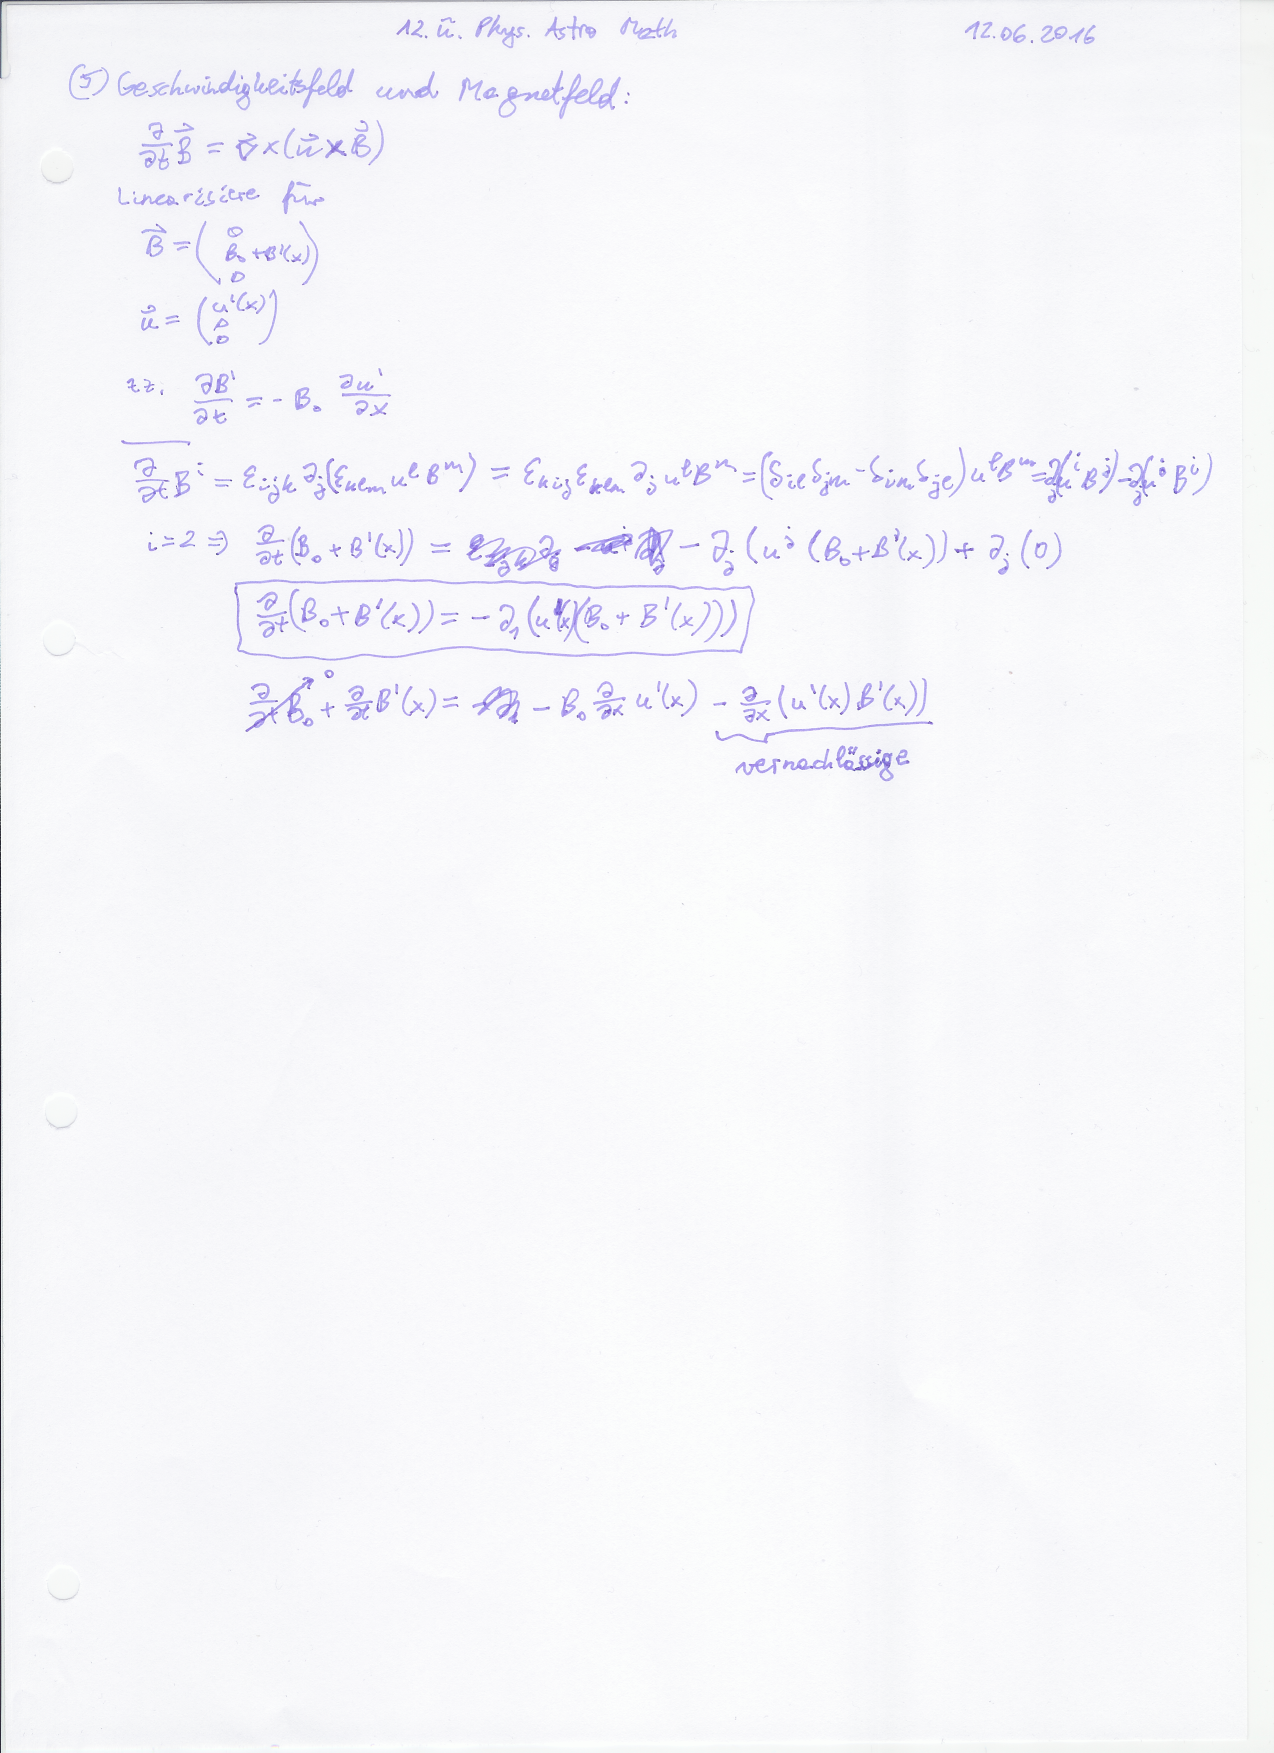 12. Ü. Phys. Astro Math 12.06.2016
(5) Geschwindigkeitsfeld und Magnetfeld:
∂/∂t B⃗ = ∇⃗ × (u⃗ × B⃗)
Linearisiere für
B⃗ = (0, B₀ + B'(x), 0)
u⃗ = (u'(x), 0, 0)
zz. ∂B'/∂t = - B₀ ∂u'/∂x
∂/∂t Bⁱ = ε_ijk ∂_j (ε_klm uˡ Bᵐ) = ε_kij ε_klm ∂_j uˡ Bᵐ = (δ_il δ_jm - δ_im δ_jl) uˡ Bᵐ = ∂_j(uⁱ Bʲ) - ∂_j(uʲ Bⁱ)
i=2 ⇒ ∂/∂t (B₀ + B'(x)) = - ∂_j (uʲ (B₀ + B'(x))) + ∂_j (0)
∂/∂t (B₀ + B'(x)) = - ∂₁ (u'(x)(B₀ + B'(x)))
∂/∂t B₀ ↗ 0 + ∂/∂t B'(x) = - B₀ ∂/∂x u'(x) - ∂/∂x (u'(x) B'(x))
vernachlässige